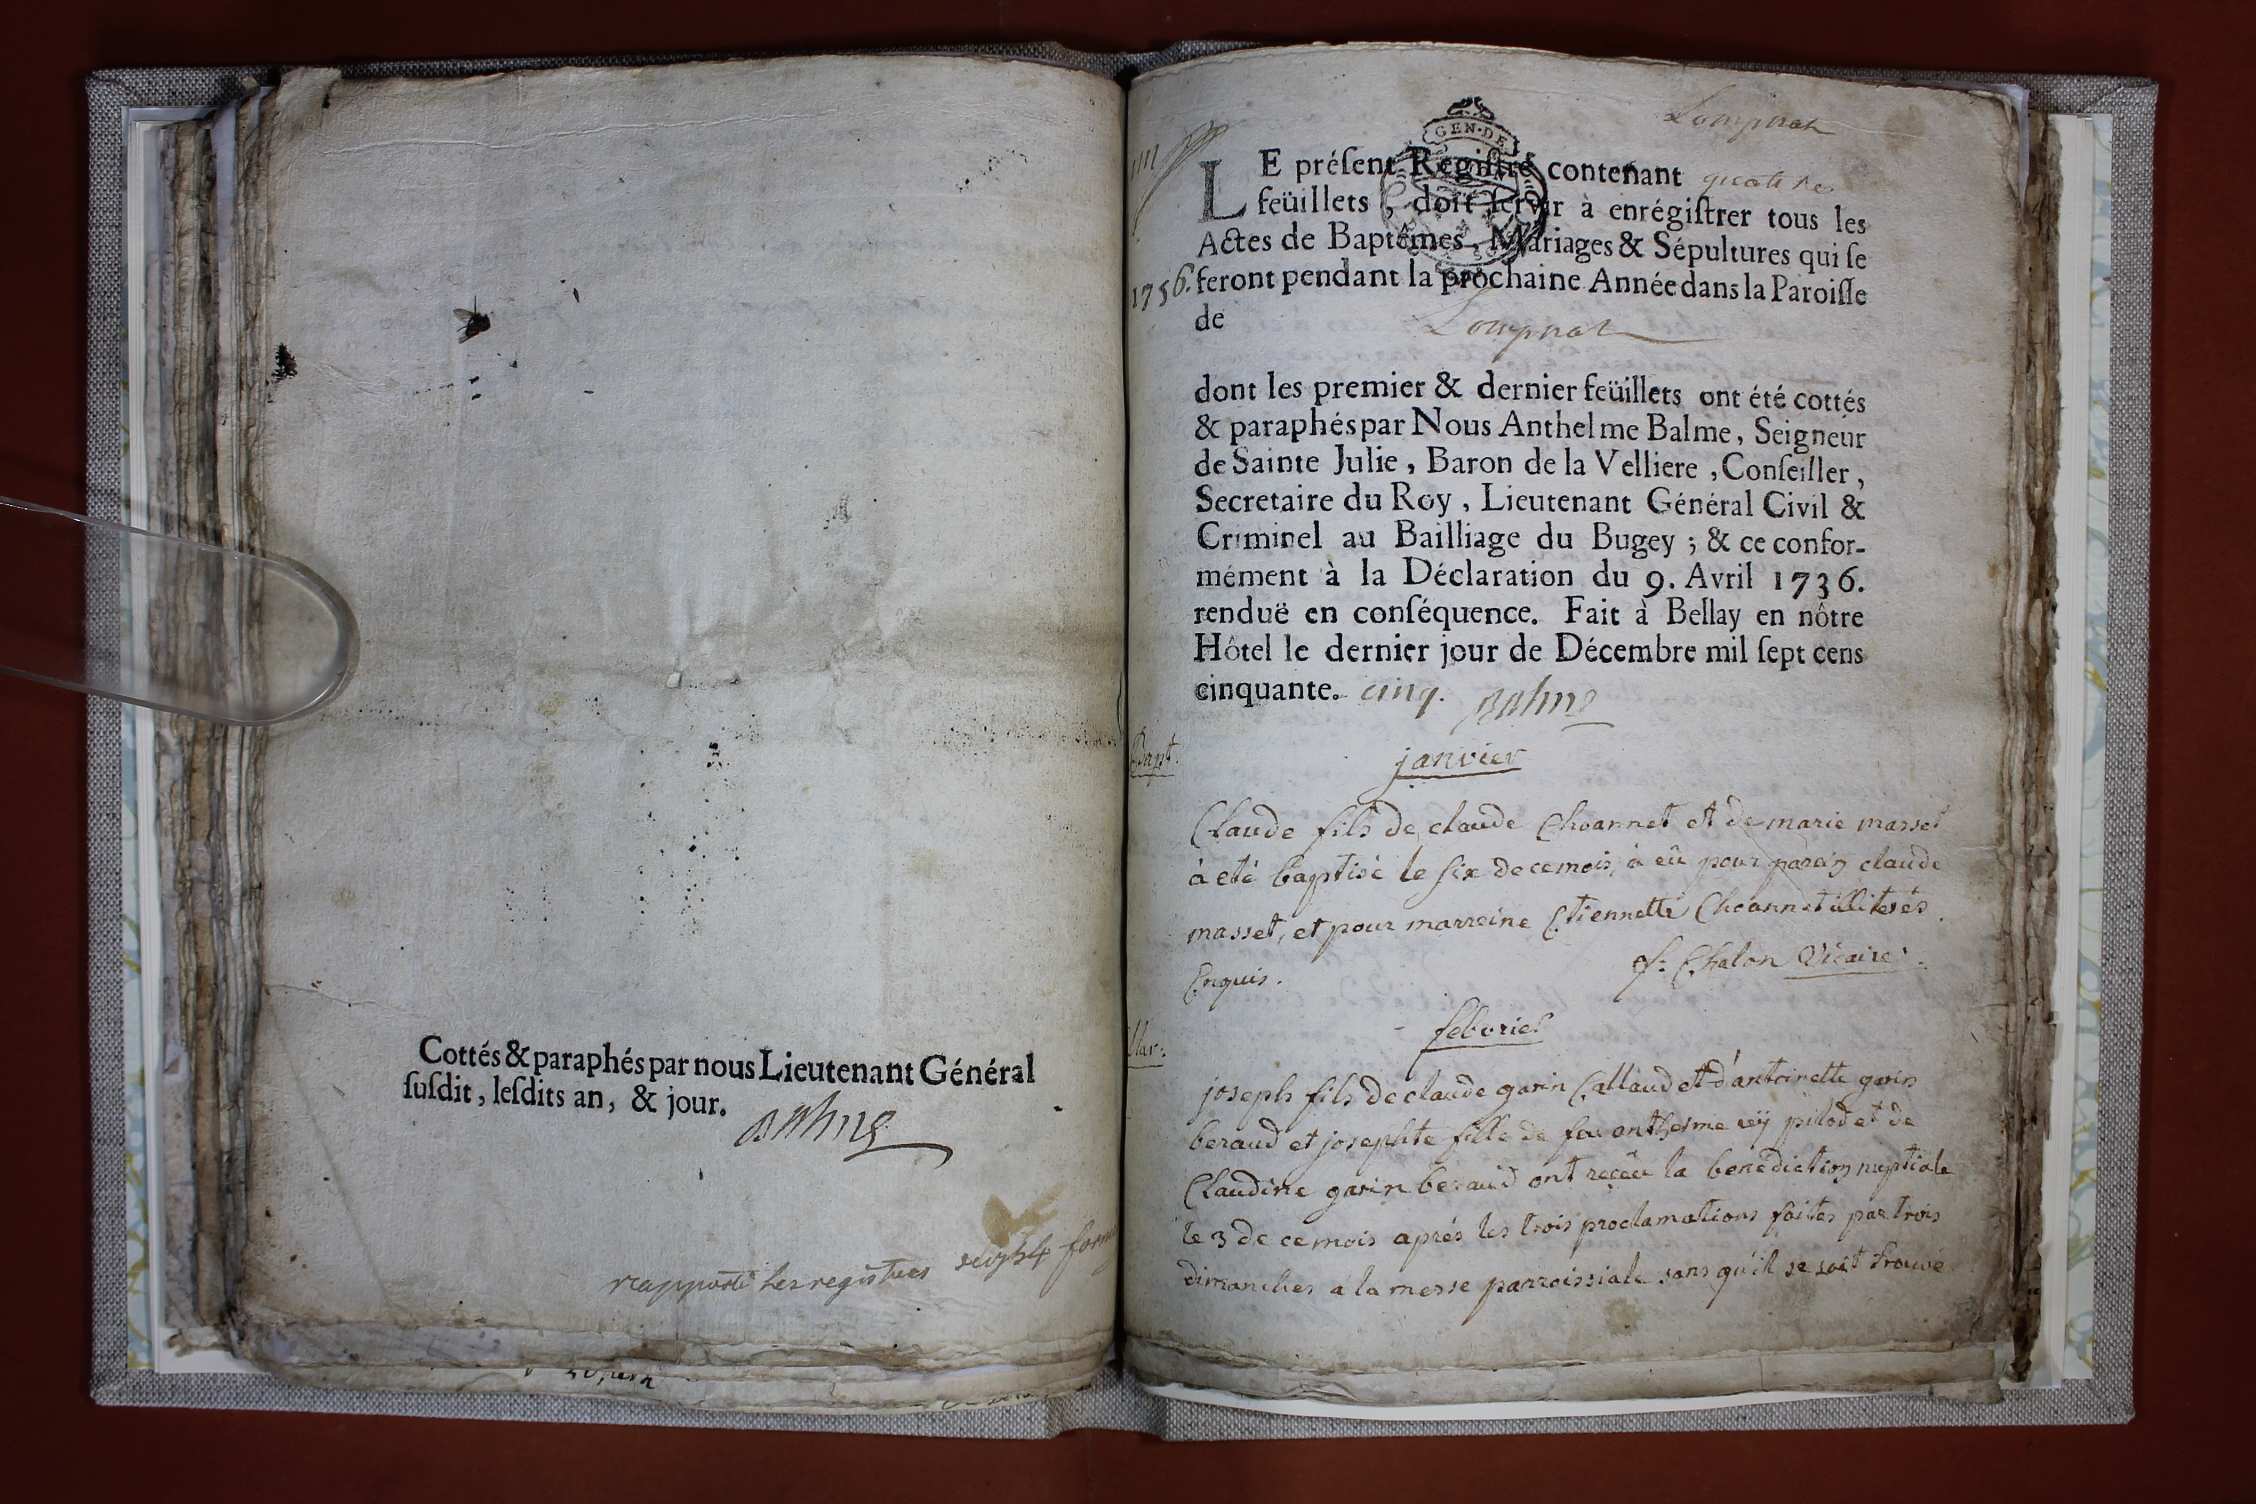 Cottés & paraphés par nous Lieutenant Général
ſuſdit, leſdits an, & jour.
Balme
rapporté les registres
Lompnas
GEN·DE
LE préſent Regiſtre contenant quatre
feüillets, doit ſervir à enrégiſtrer tous les
Actes de Baptêmes, Mariages & Sépultures qui ſe
1756. feront pendant la prochaine Année dans la Paroiſſe
de Lompnas
dont les premier & dernier feüillets ont été cottés
& paraphés par Nous Anthelme Balme, Seigneur
de Sainte Julie, Baron de la Velliere, Conſeiller,
Secretaire du Roy, Lieutenant Général Civil &
Criminel au Bailliage du Bugey; & ce confor-
mément à la Déclaration du 9. Avril 1736.
renduë en conſéquence. Fait à Bellay en nôtre
Hôtel le dernier jour de Décembre mil ſept cens
cinquante. cinq. Balme
Bapt.
janvier
Claude fils de claude Choannet et de marie masset
à eté baptisé le six de ce mois, à eû pour parain claude
masset, et pour marreine Etiennette Choannet illiterés
Enquis. f: Chalon Vicaire.
febvrier
Mar:
joseph fils de claude garin Callaud et d'antoinette garin
beraud et josephte fille de feu anthelme rey pilod et de
Claudine garin beraud ont reçeu la benediction nuptiale
le 3 de ce mois aprés les trois proclamations faites par trois
dimanches a la messe parroissiale sans qu'il se soit trouvé